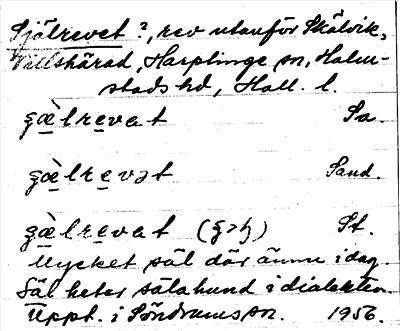 Själrevet ?, rev utanför Skälvik,
Villshärad, Harplinge sn, Halm-
stads hd, Hall. l.
ʂæ̀lrevat Sa.
ʂæ̀lrevət Sand.
ʂæ̀lrevat St.
Mycket säl där ännu i dag.
Säl heter sälahund i dialekten.
Uppt. i Söndrums sn. 1956.